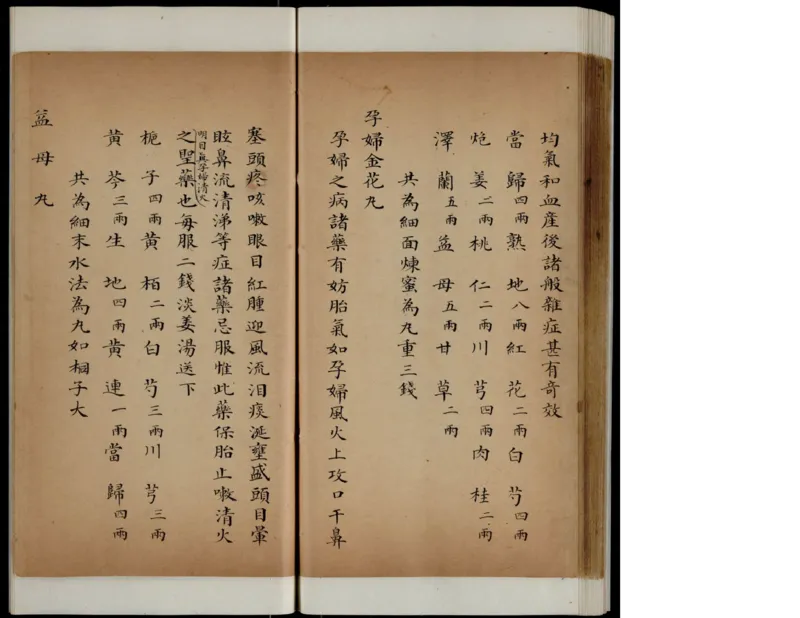 均氣和血産後諸般雜症甚有奇效
當歸四兩熟地八兩紅花二兩白芍四兩
炮姜二兩桃仁二兩川芎四兩肉桂二兩
澤蘭五兩益母五兩甘草二兩
共為細面煉蜜為丸重三錢
孕婦金花丸
孕婦之病諸藥有妨胎氣如孕婦風火上攻口干鼻
塞頭疼咳嗽眼目紅腫迎風流泪痰涎壅盛頭目暈
眩鼻流清涕等症諸藥忌服惟此藥保胎止嗽清火
明目真孕婦清火
之聖藥也每服二錢淡姜湯送下
梔子四兩黄栢二兩白芍三兩川芎三兩
黄芩三兩生地四兩黄連一兩當歸四兩
共為細末水法為丸如桐子大
益母丸